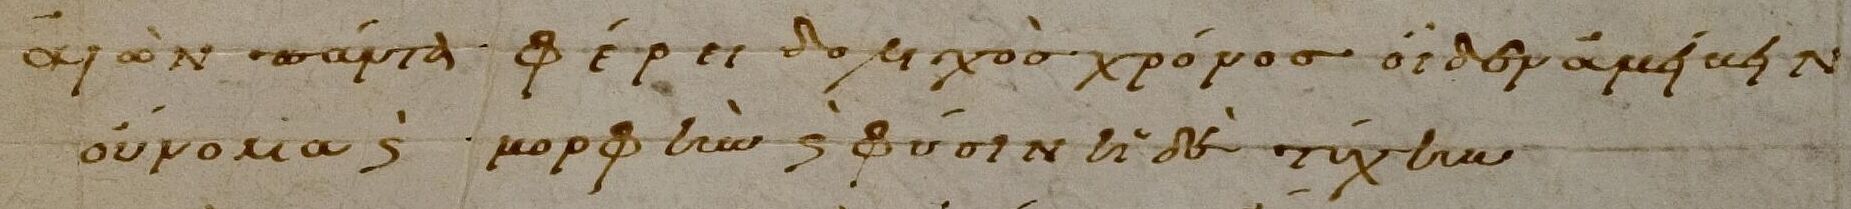 ἀιὼν πάντα φέρει δολιχὸσ χρόνοσ οἶδεν ἀμείβειν
οὔνομα ϛ̀ μορφὴν ϛ̀ φύσιν ἠδὲ τύχην